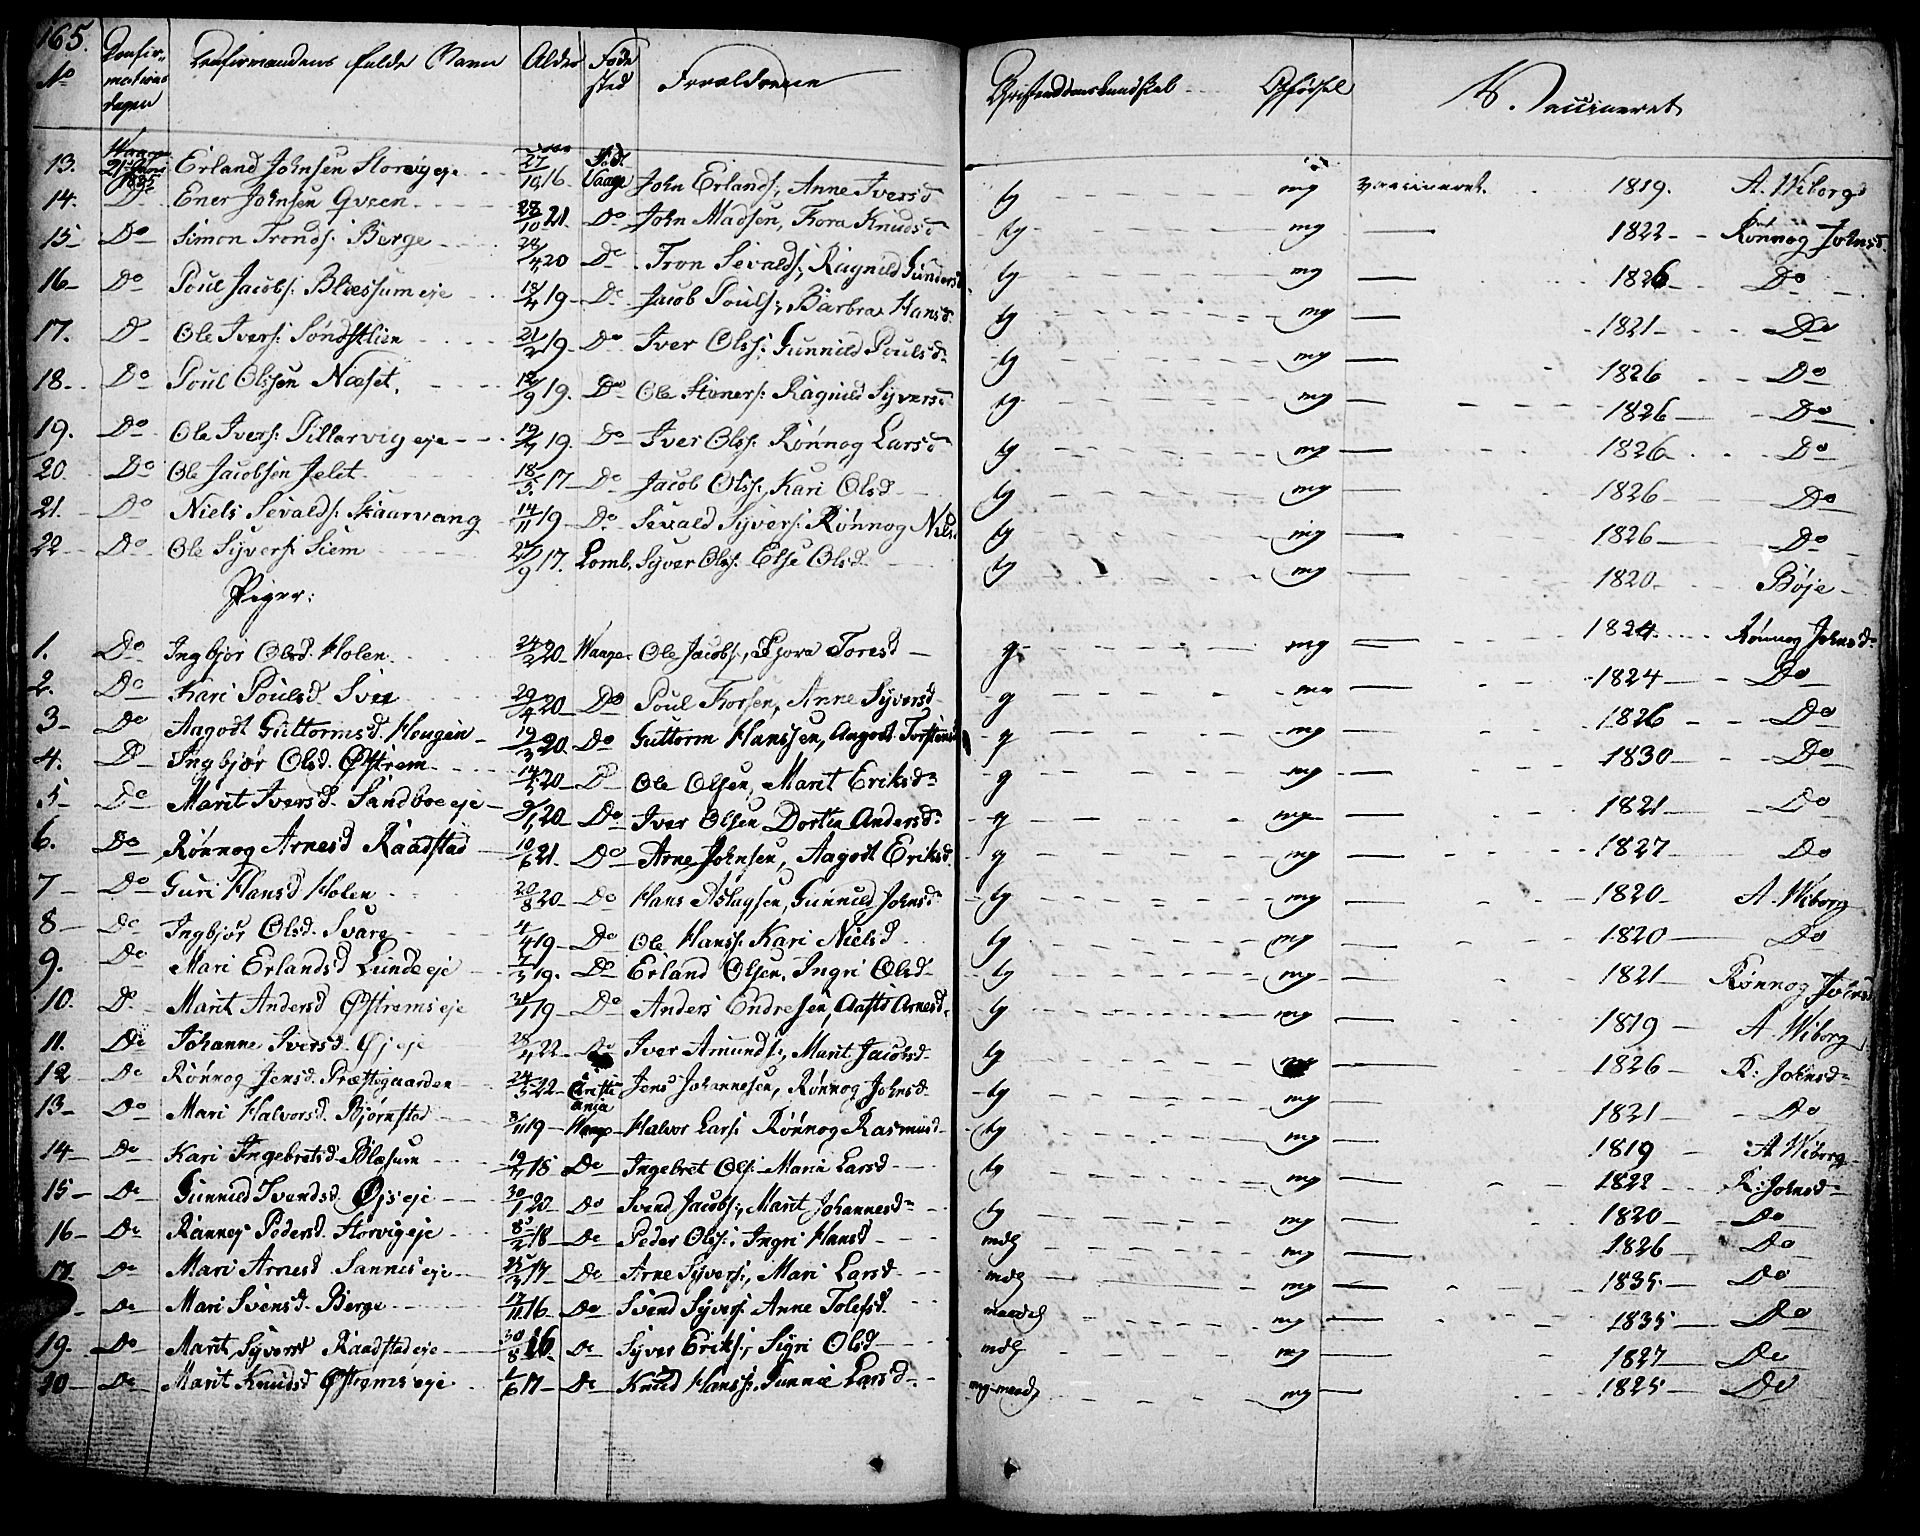 165.
No Confirmations dagen Confirmandens fulde Navn Alder Fødested Forældrene Christendomskundskab Opførsel Vaccineret
13. Erland Johnsen Storvigeje 27/10 16. Vaage John Erlands:, Anne Iversd tg mg vaccineret 1819. A. Wiborg
14. Do Ener Johnsen Qveen 28/10 21. Do John Madsen, Tora Knudsd tg mg — 1822 Rønnog Johnsd
15 Do Simon Tronds: Berge 20 Do Tron Sevalds:, Ragnild Gundersd tg mg — 1826 Do
16 Do Poul Jacobs: Blæssumeje 18/4 19 Do Jacob Pouls:, Barbra Hansd. tg mg — 1821 Do
17. Do Ole Ivers: Søndstlien 21/2 19 Do Iver Olss: Gunnild Poulsd tg mg — 1826 Do
18 Do Poul Olssen Næset. 12/9 19. Do Ole Steners: Ragnild Syversd tg mg — 1826 Do
19. Do Ole Ivers: Pillarvigeje 19. Do Iver Olss: Rønnog Larsd tg mg — 1826 Do
20. Do Ole Jacobsen Jelet 18/5 17 Do Jacob Olss:, Kari Olsd tg mg — 1826 Do
21. Do Niels Sevalds: Skaarvang 14/11 19 Do Sevald Syvers: Rønnog Nils. tg mg — 1826 Do
22 Do Ole Syvers: Siem 27/9 17. Lomb. Syver Olss: Else Olsd tg mg — 1820 Bøje
Piger:
1. Do Ingbjor Olsd. Holen 24/3 20 Waage Ole Jacobs:, Thora Toresd g mg — 1824 Rønnog Johnsd
2. Do Kari Poulsd. Svee 29/4 20 Do Poul Torsen, Anne Syversd g mg — 1824 Do
3 Do Aagodt Guttormsd. Hougen 19/3 20. Do Guttorm Hanssen, Aagodt Torstensd g mg — 1826 Do
4. Do Ingbjør Olsd. Østrem 14 20 Do Ole Olsen, Marit Eriksd g mg — 1830 Do
5 Do Marit Iversd. Sandboeeje 9/1 20 Do Iver Olsen Dortia Andersd g mg — 1821 Do
6. Do Rønnog Arnesd Raadstad 10/6 21 Do Arne Johnsen, Aagodt Eriksd. g mg — 1827 Do
7 Do Guri Hansd Holen 20/8 20 Do Hans Aslagsen, Gunnild Johnsd tg mg — 1820 A. Wiborg
8 Do Ingbjør Olsd. Svare 4/4 19 Do Ole Hanss: Kari Nielsd tg mg — 1820 Do
9. Do Mari Erlandsd Lundeeje 7/3 19. Do Erland Olsen, Ingri Olsd tg mg — 1821 Rønnog Johnsd
10. Do Marit Andersd Østremseje 31/1 19 Do Anders Endresen, Aasto Arnesd. tg mg — 1819 A. Wiborg
11. Do Johanne Iversd. Øjeje 28/4 22 Do Iver Amunds:, Marit Jacobsd tg mg — 1826 R: Johnsd
12 Do Rønnog Jensd. Præstegaarden 24/5 22 Christiania Jens Johannesen, Rønnog Johnsd tg mg — 1821 Do
13 Do Mari Halvorsd. Bjørnstad 8/11 19 Waage Halvor Lars: Rønnog Rasmusd tg mg — 1819 A. Wiborg
14 Do Kari Ingebretsd. Blæsum 18 Do Ingebret Ols: Maria Larsd tg mg — 1822 R: Johnsd
15 Do Gunnild Svendsd. Øjseje 30/1 20 Do Svend Jacobs:, Marit Johannesd tg mg — 1820 Do
16 Do Rannej Pedersd. Storvigeje 18 Do Peder Olss:, Ingri Hansd mdlg mg — 1826 Do
17. Do Mari Arnesd Sanneseje 17 Do Arne Syvers:, Mari Larsd mdlg mg — 1835 Do
Do Mari Svensd. Berge 17/11 16 Do Svend Syvers: Anne Tolefsd. maadelg mg — 1835 Do
19. Do Marit Syversd Raadstadeje 30/8 16 Do Syver Eriks:, Sigri Olsd mdlg mg — 1827 Do
20 Do Marit Knudsd Østremseje 1/6 17 Do Knud Hanss: Gunnil Larsd mg maadlg mg — 1825 Do